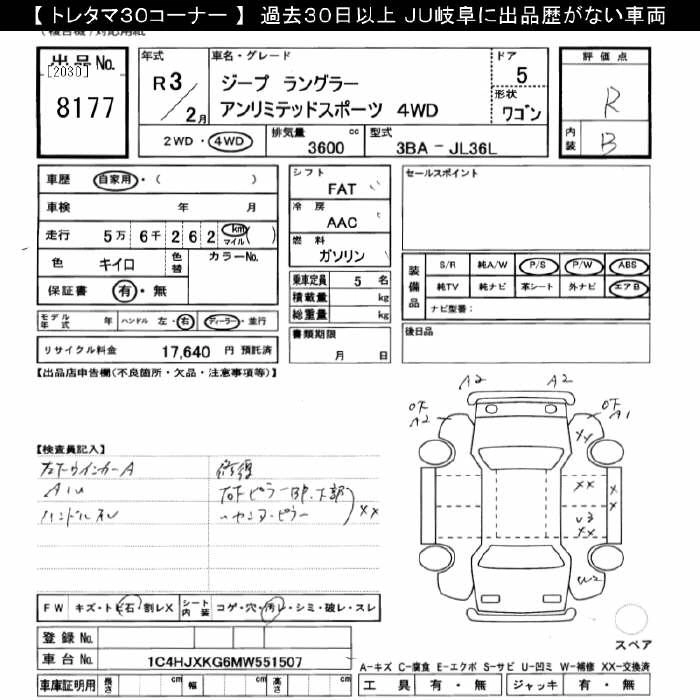 【 トレタマ30コーナー 】 過去30日以上 JU岐阜に出品歴がない車両
出品No.
[2030]
8177
年式
R3
/2月
車名・グレード
ジープ ラングラー
アンリミテッドスポーツ 4WD
ドア
5
形状
ワゴン
評価点
R
内装
B
2WD・4WD
排気量
3600 cc
型式
3BA - JL36L
車歴 自家用・( )
車検 年 月
走行 5万 6千 2 6 2 km マイル ( )
色 キイロ 色替 カラーNo.
保証書 有・無
シフト
FAT
冷房
AAC
燃料
ガソリン
乗車定員 5 名
積載量 kg
総重量 kg
書類期限
月 日
セールスポイント
装備品
S/R 純A/W P/S P/W ABS
純TV 純ナビ 革シート 外ナビ エアB
ナビ型番:
後日品
モデル年式 年 ハンドル 左・右 ディーラー・並行
リサイクル料金 17,640 円 預託済
【出品店申告欄(不良箇所・欠品・注意事項等)】
A2 A2
A2 A1
【検査員記入】
左下ウインカーA
AIU
ハンドルスレ
修復
XX
XX
XX
XX
U3
W2
FW キズ・トビ石・割レX シート内装 コゲ・穴・汚レ・シミ・破レ・スレ
登録No.
車台No. 1C4HJXKG6MW551507
車庫証明用 長さ cm 幅 cm 高さ cm
スペア
A-キズ C-腐食 E-エクボ S-サビ U-凹ミ W-補修 XX-交換済
工具 有・無 ジャッキ 有・無